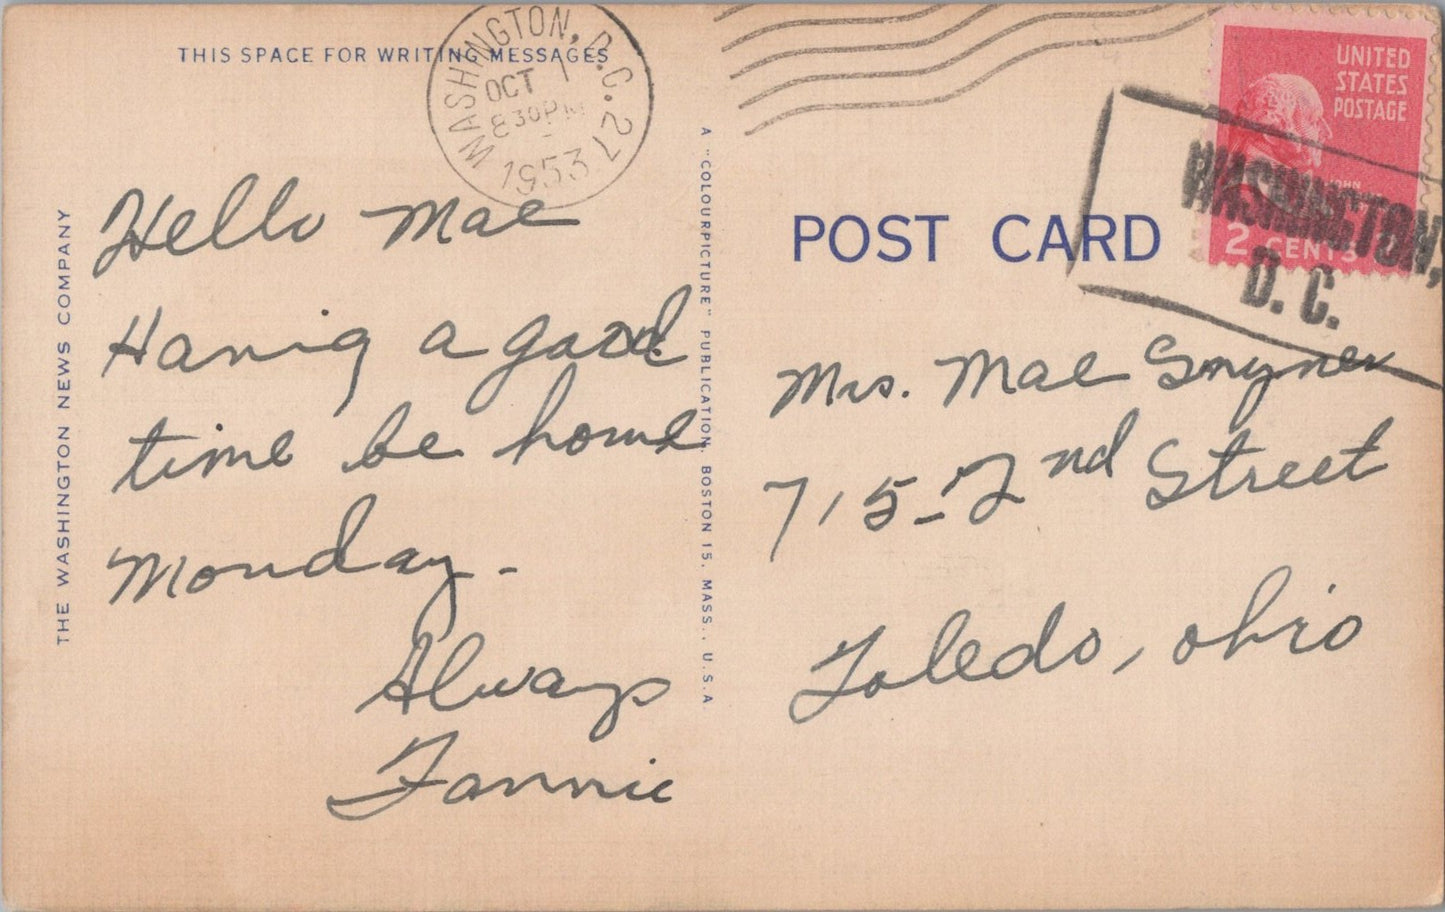 THIS SPACE FOR WRITING MESSAGES
WASHINGTON, D.C. 27
OCT 1
8 30 PM
1953
UNITED
STATES
POSTAGE
JOHN
2 CENTS
WASHINGTON,
D. C.
POST CARD
THE WASHINGTON NEWS COMPANY
A "COLOURPICTURE" PUBLICATION, BOSTON 15, MASS., U.S.A
Hello Mae
Having a good
time be home
Monday -
Always
Fannie
Mrs. Mae
715-2nd Street
Toledo, Ohio